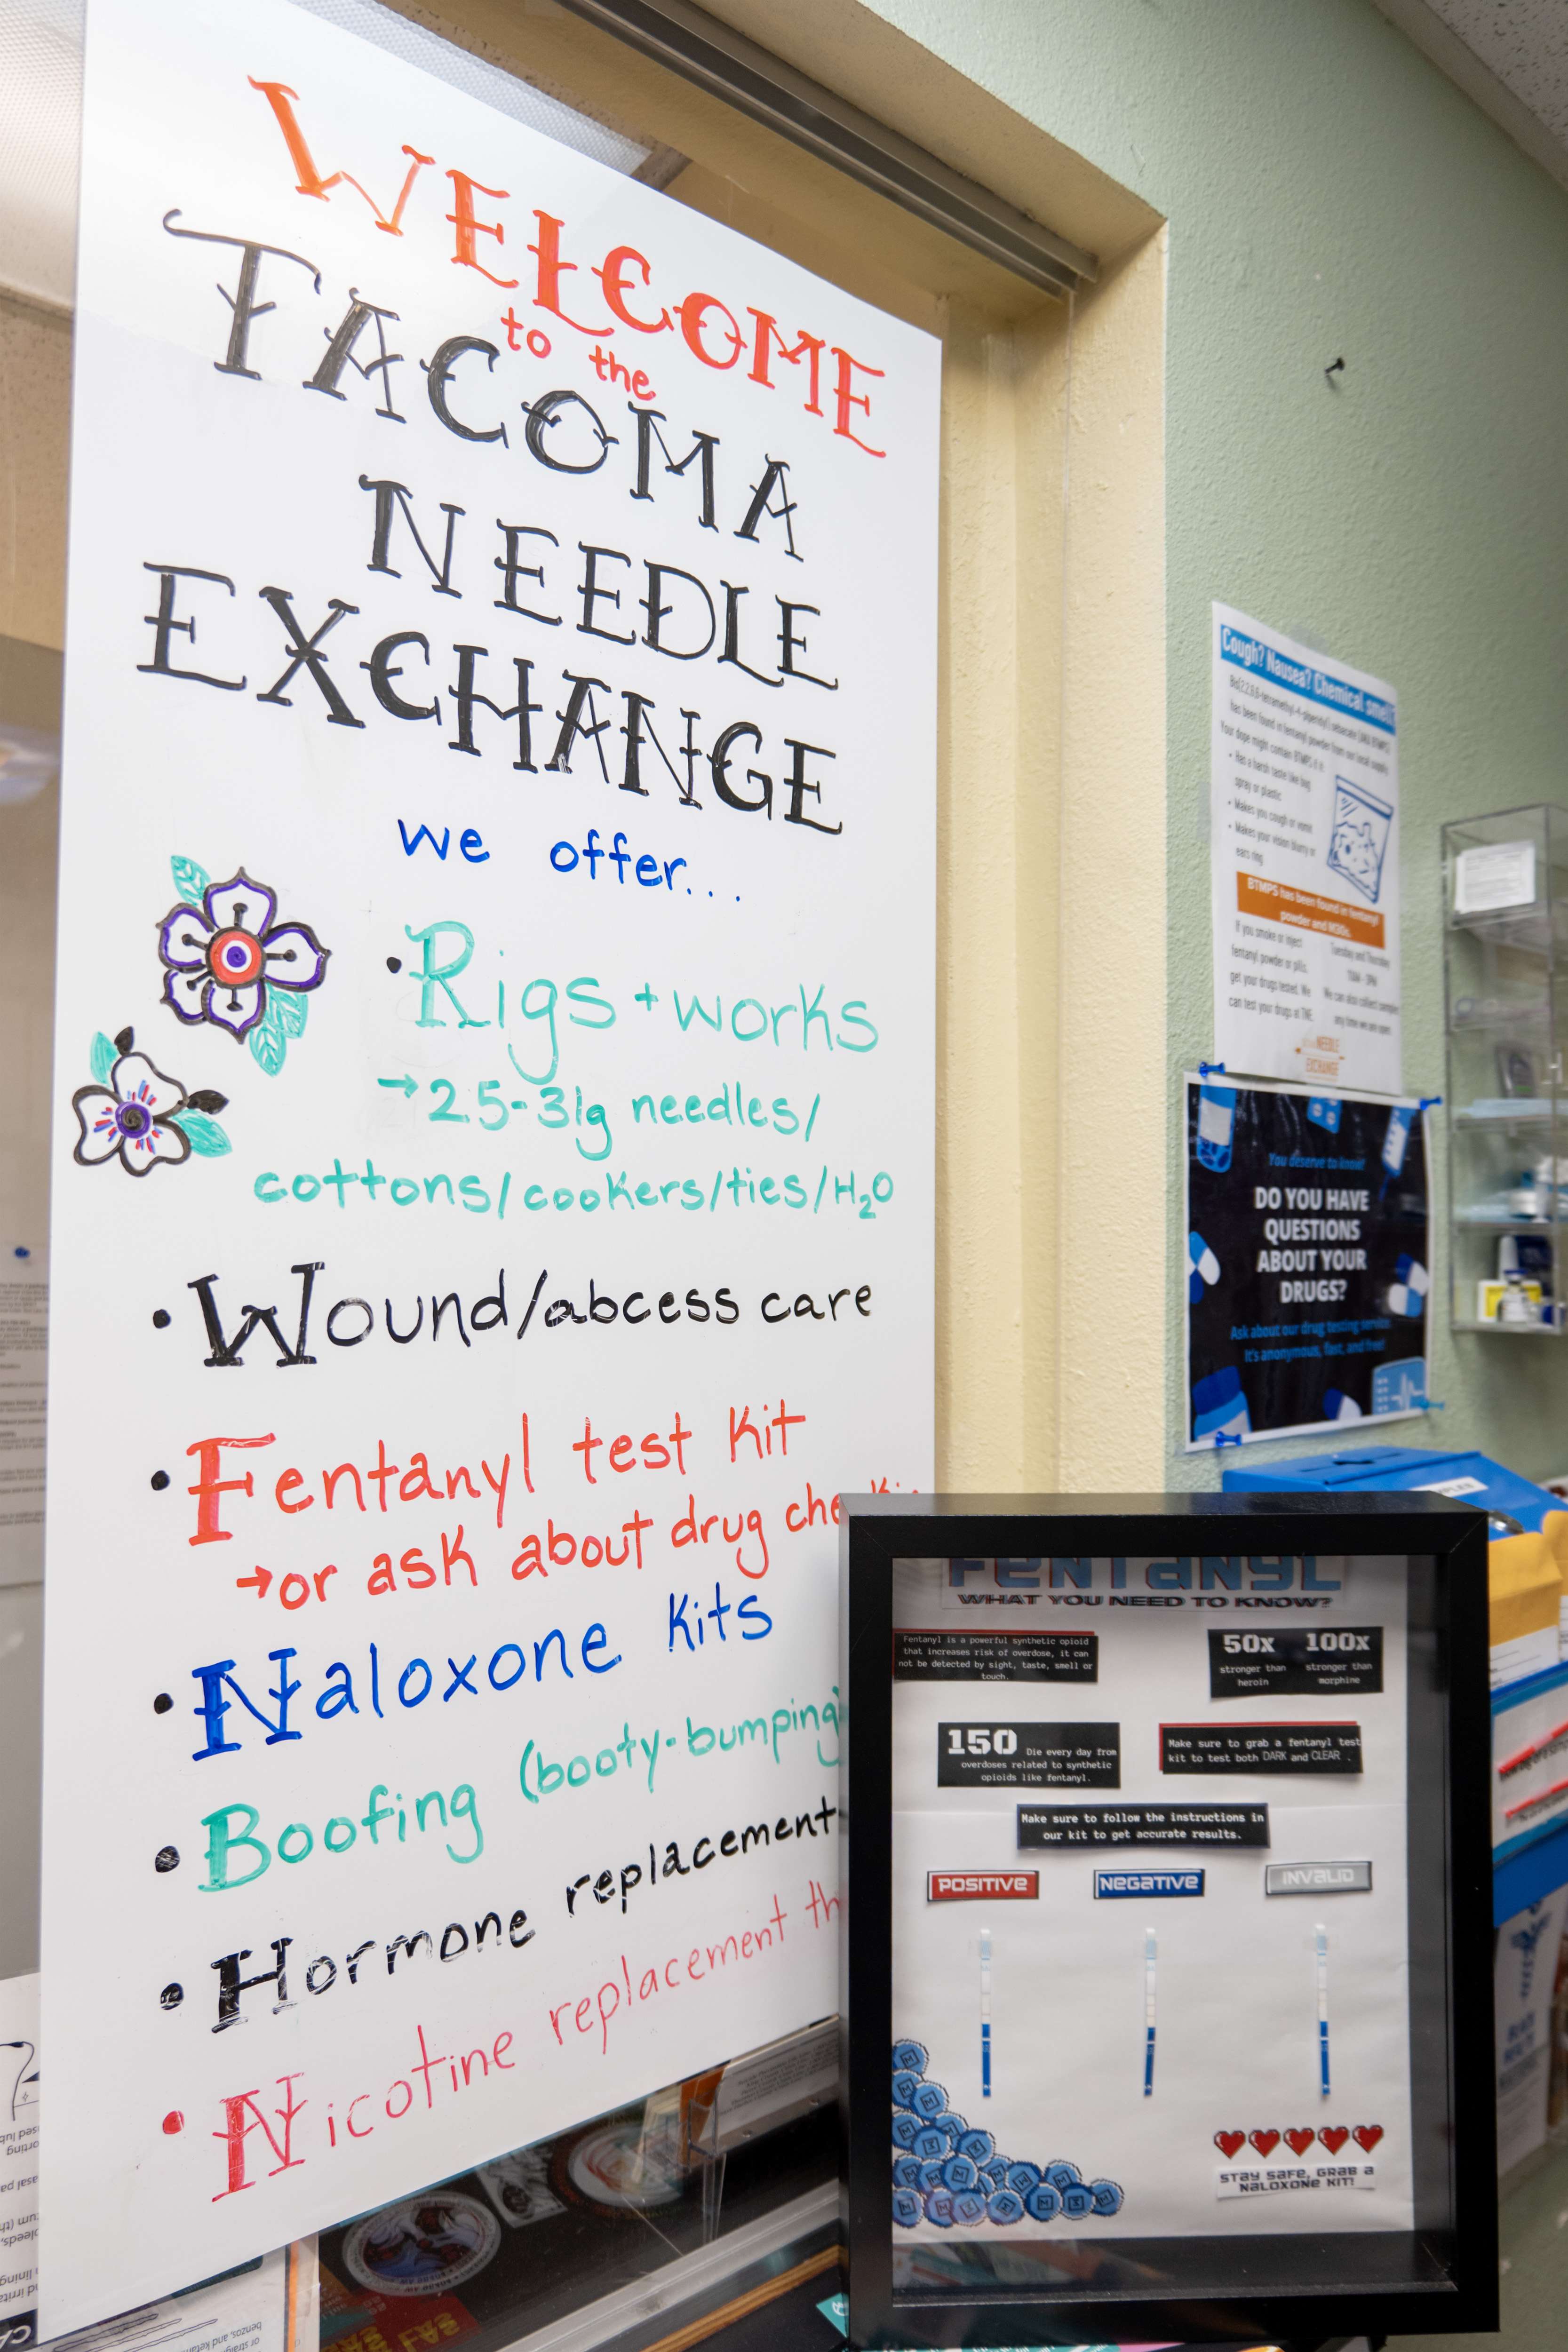 WELCOME
to the
TACOMA
NEEDLE
EXCHANGE
we offer...
• Rigs + works
→ 25-31g needles/
cottons/cookers/ties/H₂O
• Wound/abcess care
• Fentanyl test kit
→or ask about drug
• Naloxone kits
• Boofing (booty-bumping)
• Hormone replacement
• Nicotine replacement
Cough? Nausea? Chemical smell?
has been found in fentanyl powder from our local supply.
Your dope might contain BTMPS if it
• Has a harsh taste like bug
spray or plastic
• Makes you cough or vomit
• Makes your vision blurry or
ears ring
BTMPS has been found in fentanyl
powder and M30s.
If you smoke or inject
fentanyl powder or pills,
get your drugs tested. We
can test your drugs at TNE.
Tuesday and Thursday
10AM - 3PM
We can also collect samples
any time we are open.
NEEDLE
EXCHANGE
You deserve to know!
DO YOU HAVE
QUESTIONS
ABOUT YOUR
DRUGS?
Ask about our drug testing service.
It's anonymous, fast, and free!
FENTANYL
WHAT YOU NEED TO KNOW?
Fentanyl is a powerful synthetic opioid
that increases risk of overdose, it can
not be detected by sight, taste, smell or
touch.
50x
stronger than
heroin
100x
stronger than
morphine
150 Die every day from
overdoses related to synthetic
opioids like fentanyl.
Make sure to grab a fentanyl test
kit to test both DARK and CLEAR .
Make sure to follow the instructions in
our kit to get accurate results.
POSITIVE
NEGATIVE
INVALID
STAY SAFE, GRAB A
NALOXONE KIT!